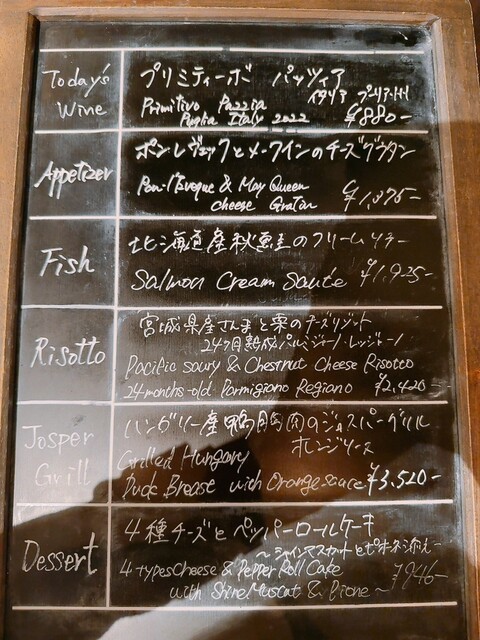 Today's Wine
プリミティーボ パッツィア
イタリア プーリア州
Primitivo Pazzia
Puglia Italy 2022
¥880-
Appetizer
ポンレヴェックとメークインのチーズグラタン
Pon-l'Eveque & May Queen
cheese Gratan
Fish
北海道産秋鮭のクリームソテー
Salmon Cream Saute ¥1,925-
Risotto
宮城県産さんまと栗のチーズリゾット
24ヶ月熟成パルミジャーノ・レッジャーノ
Pacific saury & Chestnut Cheese Risotto
24-months-old Parmigiano Regiano ¥2,420-
Josper Grill
ハンガリー産鴨胸肉のジョスパーグリル
オレンジソース
Grilled Hungary
Duck Breast with Orange sauce ¥3,520-
Dessert
4種チーズとペッパーロールケーキ
~シャインマスカットとピオーネ添え~
4 types Cheese & Pepper Roll Cake
with Shine Muscat & Pione~